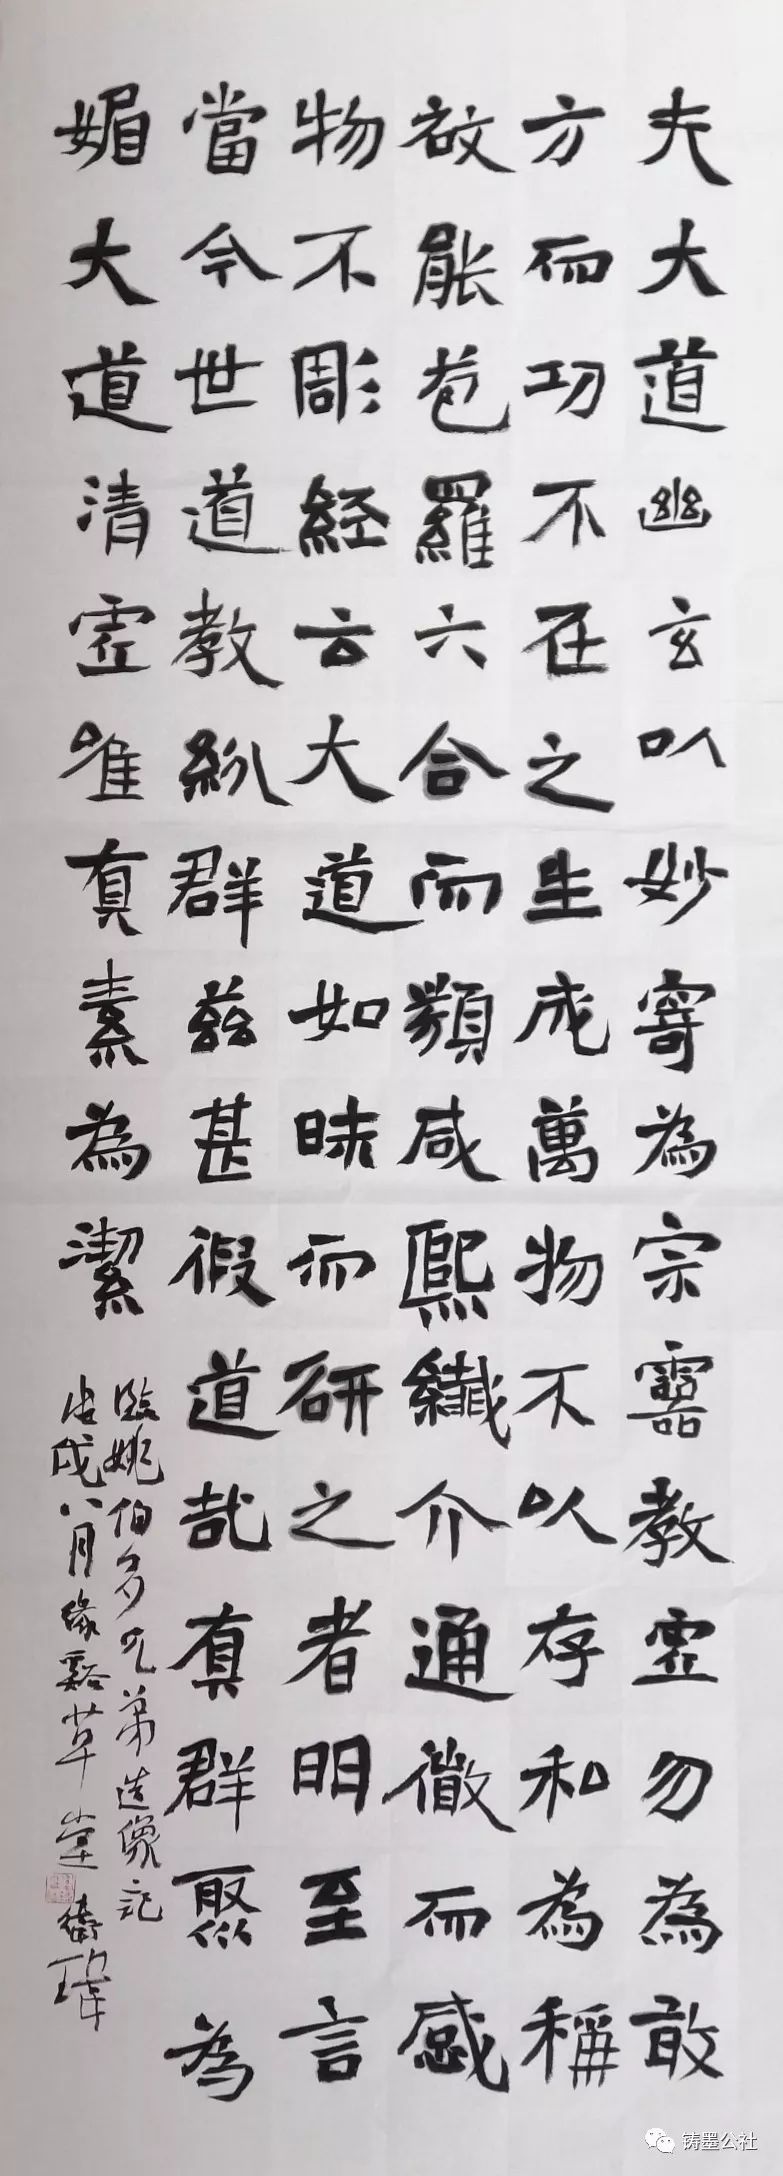 夫大道幽玄以妙寄為宗靈教虛勿為敢
方而功不在之生成萬物不以存和為稱
故能苞羅六合而類咸熙纖介通微而感
物不彫經云大道如昧而研之者明至言
當今世道教紛群茲甚假道哉真群聚為
媚大道清虛唯真素為潔
臨姚伯多兄弟造像記
戊戌八月緣谿草堂衛瑋
铸墨公社